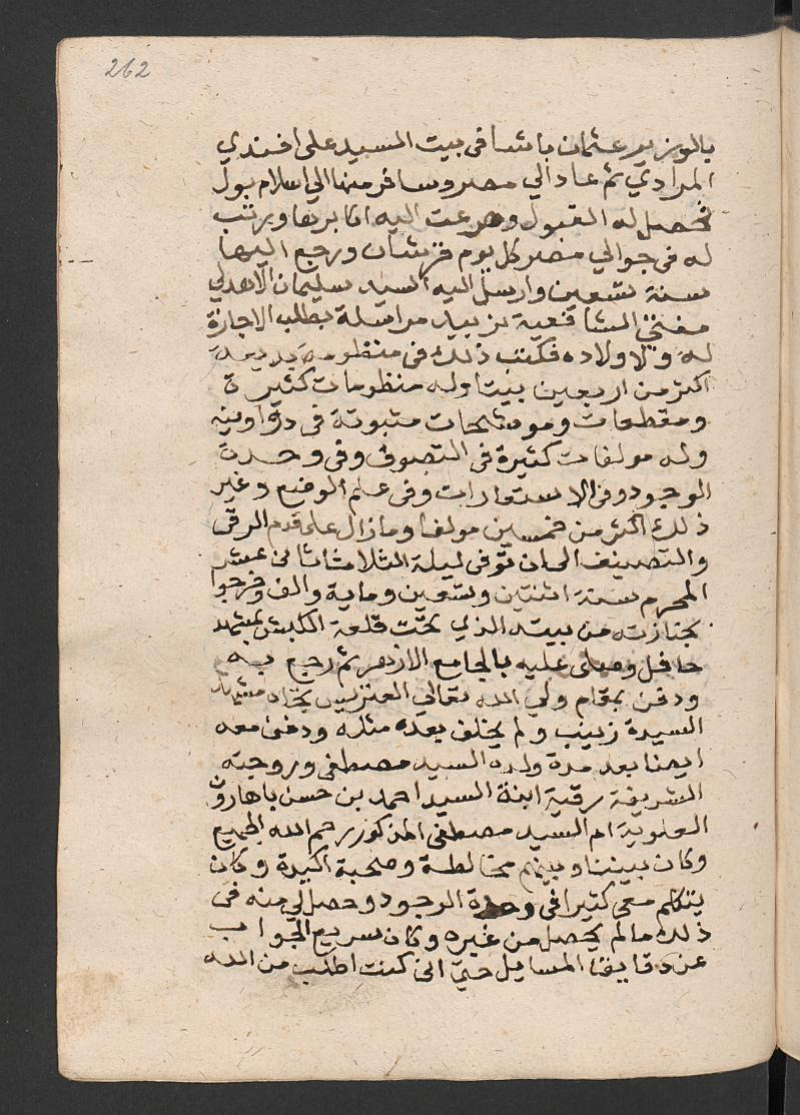 262
بالوزير عثمان باشا في بيت السيد علي افندي
المرادي ثم عاد الي مصر وسافر منها الي اسلامبول
فحصل له القبول وهرعت اليه اكابرها ورتب
له في جوالي مصر كل يوم قرشان ورجع اليها
سنة تسعين وارسل اليه السيد سليمان الاهدلي
مفتي الشافعية بزبيد مراسلة بطلب الاجازة
له ولاولاده فكتب ذلك في منظومة بديعة
اكثر من اربعين بيتا وله منظومات كثيرة
ومقطعات وموشحات مثبوتة في دواوينه
وله مولفات كثيرة في التصوف وفي وحدة
الوجود وفي الاستعارات وفي علم الوضع وغير
ذلك اكثر من خمسين مولفا وما زال على قدم الرقي
والتصنيف الي ان توفي ليلة الثلاثا ثاني عشر
المحرم سنة اثنتين وتسعين وماية والف وخرجوا
بجنازته من بيته الذي تحت قلعة الكبش بمشهد
حافل وصلي عليه بالجامع الازهر ثم رجع به
ودفن بمقام ولي الله تعالي العتريس تجاه مشهد
السيدة زينب ولم يخلف بعده مثله ودفن معه
ايضا بعد مدة ولده السيد مصطفي وزوجته
الشريفة رقية ابنة السيد احمد بن حسن باهارون
العلوية ام السيد مصطفي المذكور رحم الله الجميع
وكان بيننا وبينهم مخالطة وصحبة اكيدة وكان
يتكلم معي كثيرا في وحدة الوجود وحصل لي منه في
ذلك ما لم يحصل من غيره وكان سريع الجواب
عن دقايق المسايل حتي اني كنت اطلب من الله